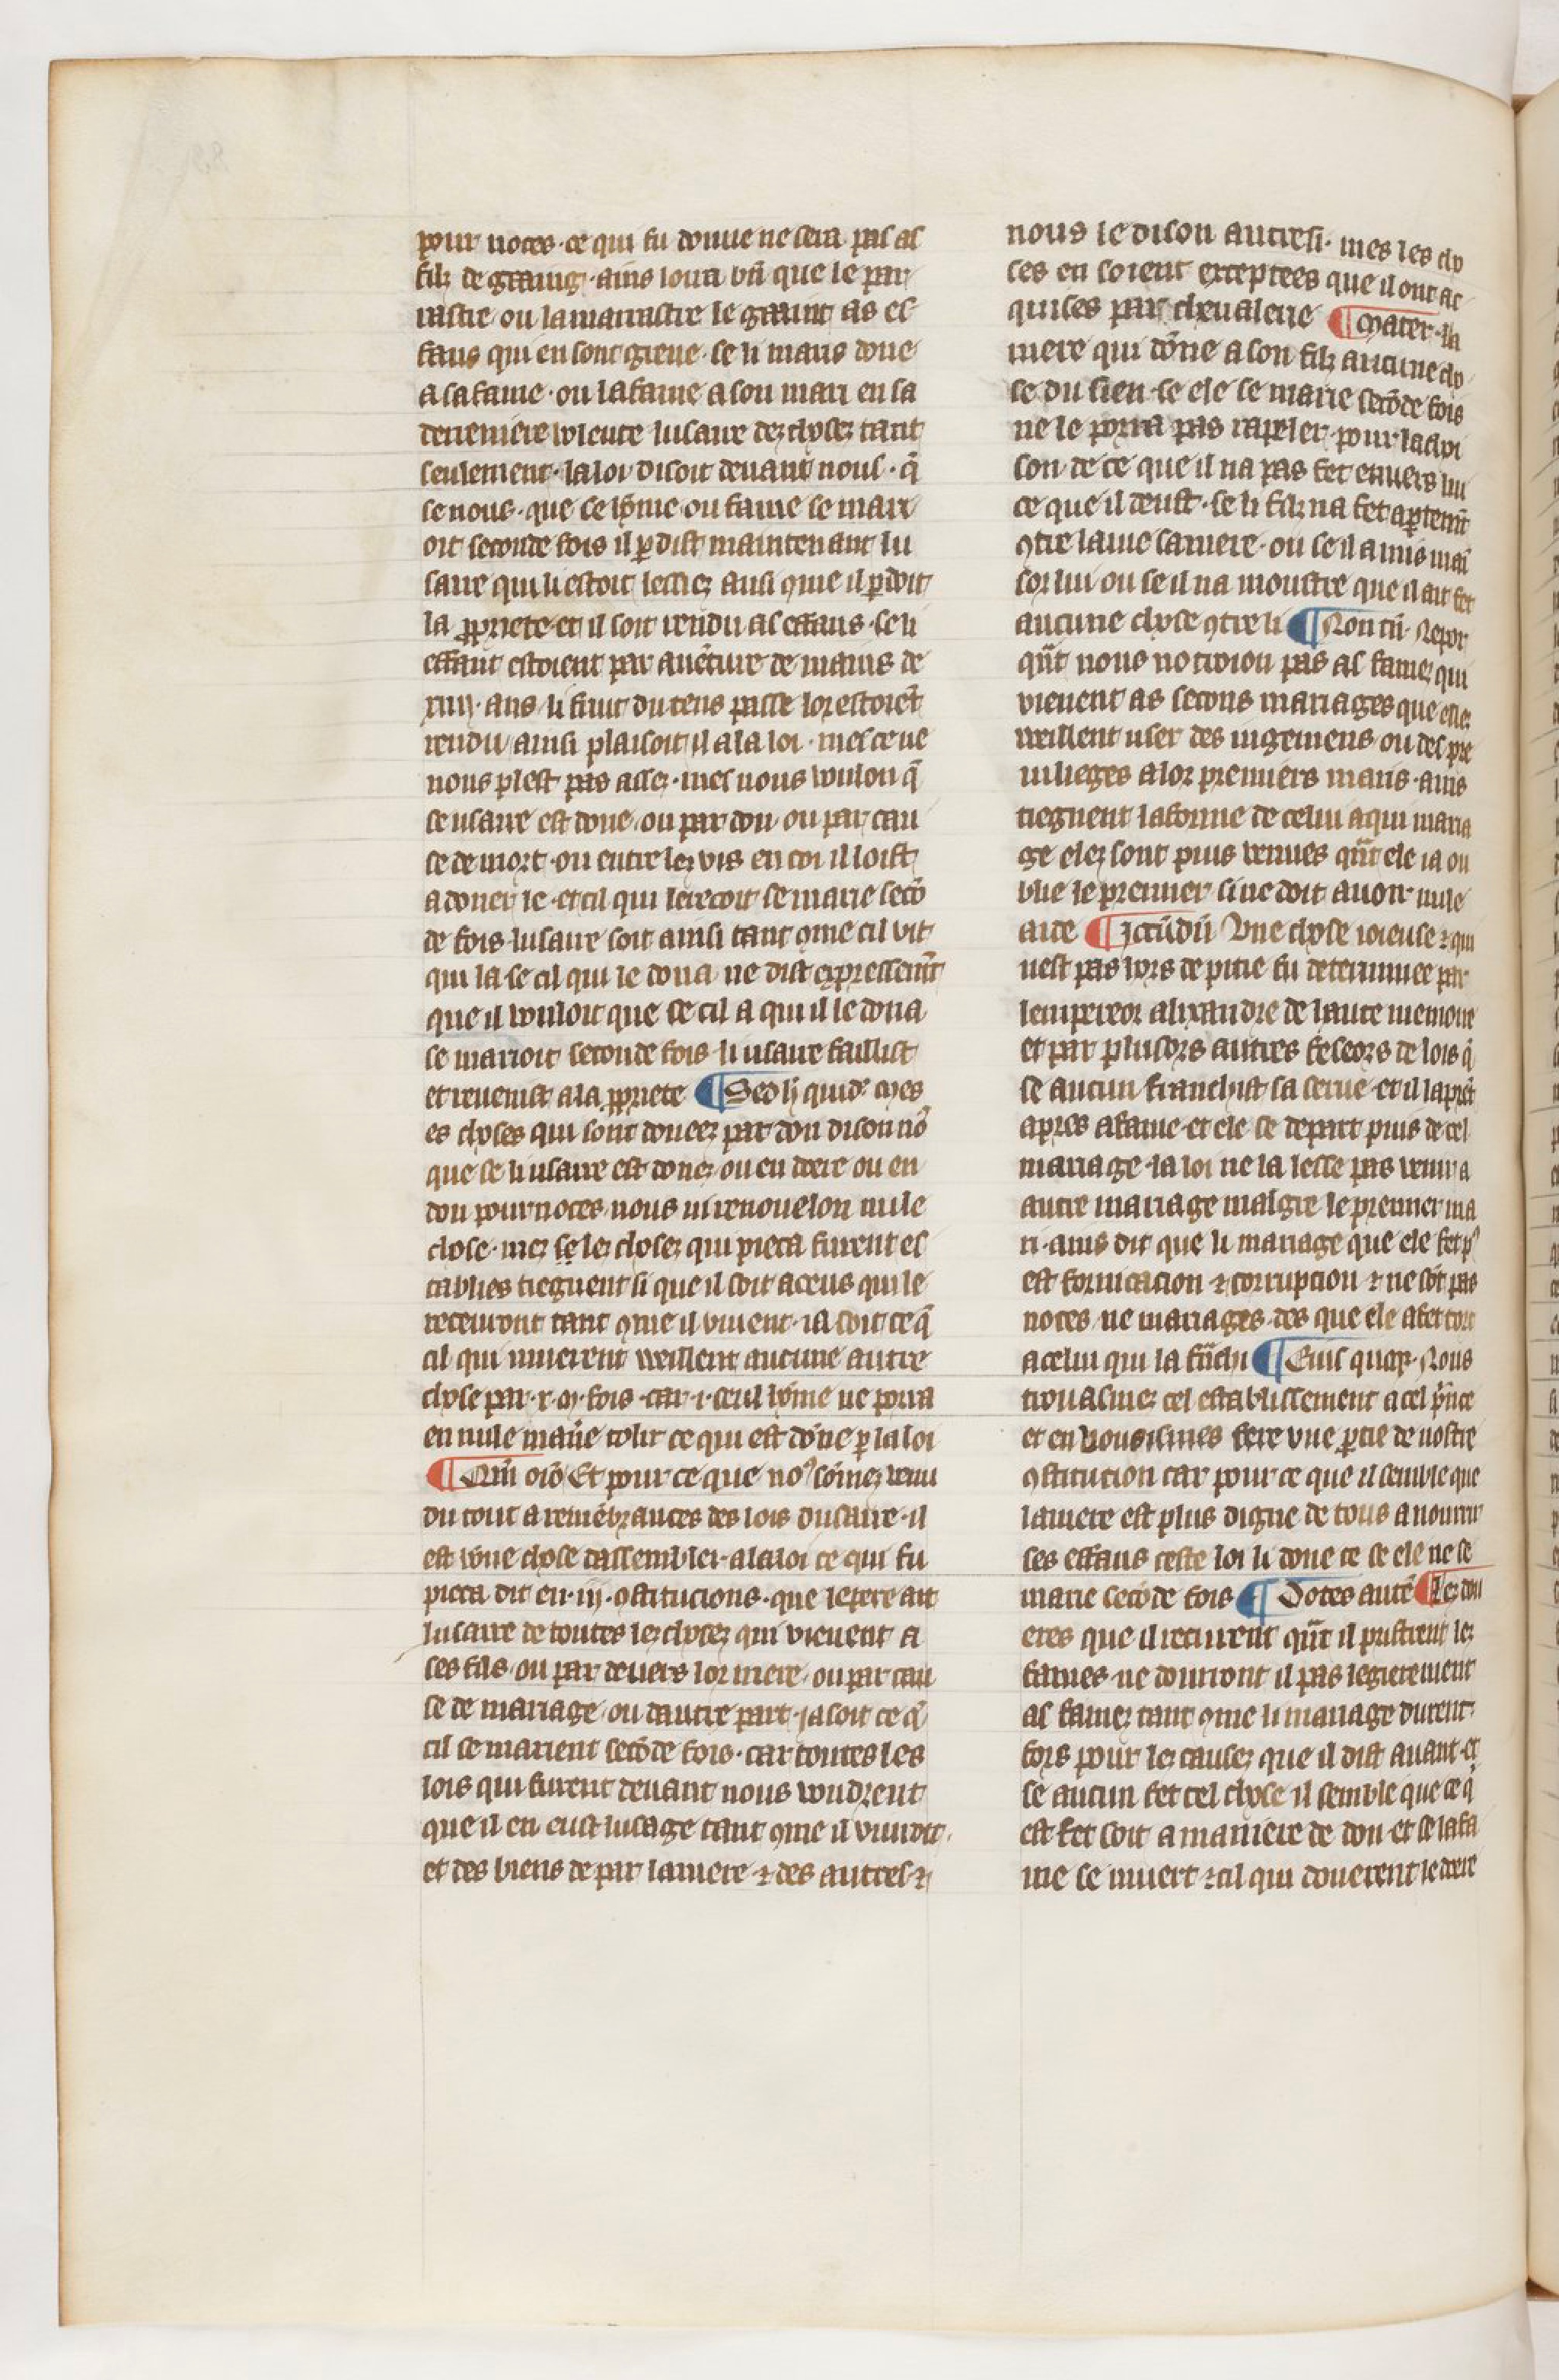 pour noces · ce qui fu donne ne sera pas as
filz de gaaing · ains joura bn̄ que le par
rastre ou la marrastre le gaaint as es
fans qui en sont greue · se li maris done
a sa fame · ou la fame a son mari en sa
derreniere volente lusaire dez chosez tant
seulement · la loi disoit deuant nous · q̄
se nous · que se home ou fame se mari
oit seconde fois il ꝑdist maintenant lu
saire qui li estoit lessiez ausi ꝯme il ꝑdoit
la ꝓpriete · et il soit rendu as effans · se li
effant estoient par auēture de mains de
xiiij · ans · li fruit du tens passe lor estoiēt
rendu ainsi plaisoit il a la loi · mes ce ne
nous plest pas assez · mes nous voulon q̄
se usaire est done · ou par don · ou par cau
se de mort · ou entre lez vis en coi il loist
a doner le · et cil qui le recoit se marie secō
de fois · lusaire soit ainsi tant ꝯme cil vit
qui la se cil qui le dona ne dist expressemt̄
que il vouloit que se cil a qui il le dona
se marioit seconde fois · li usaire faillist
et reuenist a la ꝓpriete ¶ Sed h̄ quidē mes
es choses qui sont doneez par don dison nō
que se li usaire est donez · ou en doere ou en
don pour noces · nous ni renouelon nule
chose · mez se lez chosez qui pieca furent es
tablies tiegnent si que il soit a ceus qui le
receuront tant ꝯme il viuent · ia soit ce q̄
cil qui muerent veillent aucune autre
chose par · x · m · fois · car · i · seul home ne porra
en nule manie tolir ce qui est done ꝑ la loi
¶ Qm̄ oīo Et pour ce que noꝰ somez venu
du tout a remēbrances des lois dusaire · il
est bone chose dassembler · a la loi ce qui fu
pieca dit en · iij · ꝯstitucions · que le pere ait
lusaire de toutes lez chosez qui vienent a
ses fils · ou par deuers lor mere · ou par cau
se de mariage · ou dautre part · ja soit ce q̄
cil se marient secōde fois · car toutes les
lois qui furent deuant nous voudrent
que il en eust lusage tant ꝯme il viuroit ·
et des biens de par la mere ⁊ des autres · ⁊
nous le dison autresi · mes les cho
ses en soient exceptees que il ont ac
quises par cheualerie ¶ Mater · la
mere qui dōne a son filz aucune cho
se du sien · se ele se marie secōde fois
ne le porra pas rapeler · pour lachoi
son de ce que il na pas fet enuers lui
ce que il deust · se li filz na fet aꝑtemt̄
ꝯtre la vie sa mere · ou se il a mis mai
sor lui ou se il na moustre que il ait fet
aucune chose ꝯtre li ¶ Non tn̄ · Nepor
qn̄t nous notroion pas as famez qui
vienent as secons mariages que elez
veillent user des iugemens · ou des pre
uileges a lor premiers maris · ains
tiegnent la forme de celui a qui maria
ge elez sont puis venues qn̄t ele ia ou
blie le premier · si ne doit auoir nule
aide ¶ Jocūdū Une chose ioieuse ⁊ qui
nest pas hors de pitie fu determinee par
lempereor alixandre de haute memoire
et par plusors autres feseors de lois q̄
se aucun franchist sa serue · et il la prēt
apres a fame · et ele se depart puis de cel
mariage · la loi ne la lesse pas venir a
autre mariage malgre le premier ma
ri · ains dit que li mariage que ele fet pꝰ
est fornicacion ⁊ corrupcion ⁊ ne sōt pas
noces · ne mariages · des que ele a fet tort
a celui qui la frāchi ¶ Eius quoqꝫ · Nous
trouasmez cel establissement a cel p̄nce
et en vousismes fere vne ꝑtie de nostre
ꝯstitution · car pour ce que il semble que
la mere est plus digne de tous a nourrir
ses effans ceste loi li done ce se ele ne se
marie secōde fois ¶ Dotes autē ¶ Lez dou
eres que il recurent qn̄t il pristrent lez
fames · ne donront il pas legierement
as famez tant ꝯme li mariage durent
fors pour lez causez que il dist auant · et
se aucun fet cel chose il semble que ce q̄
est fet soit a maniere de don · et se la fa
me se muert ⁊ cil qui donerent le doere